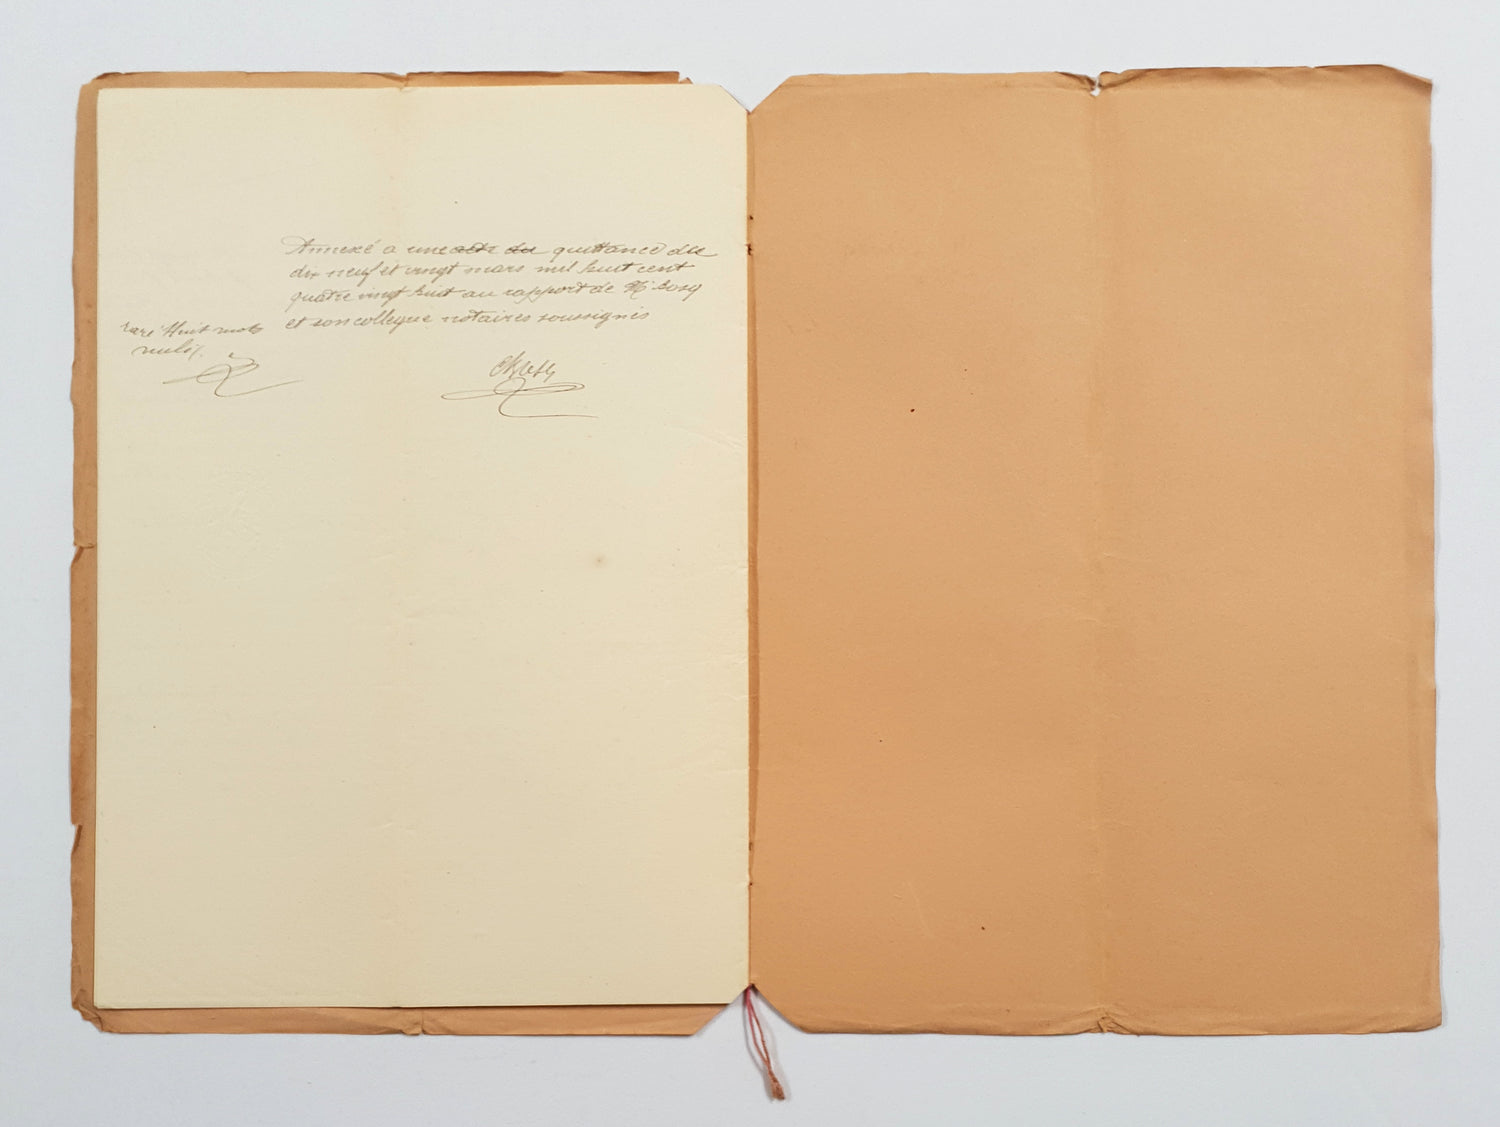 Annexé a une acte du quittance des
dix neuf et vingt mars mil huit cent
quatre vingt huit au rapport de Me
et son collegue notaires soussignés
rayé Huit mots
nuls.